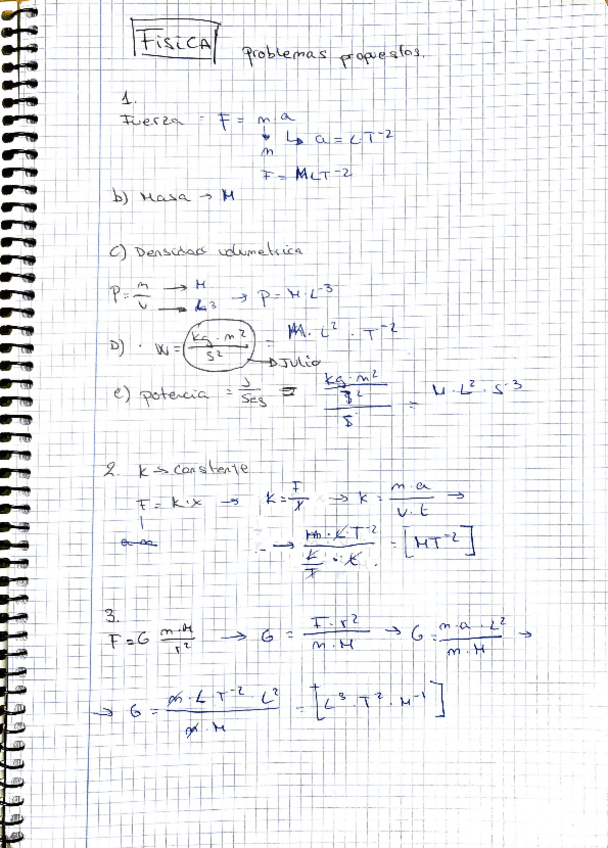 FÍSICA problemas propuestos.
1.
Fuerza = F = m.a
↓ ↳ a = L·T⁻²
m
F = MLT⁻²
b) Masa → M
c) Densidad volumetrica
P = m/v → M / → L³ → P = M·L⁻³
D) · W = (kg·m²/s²) = M·L²·T⁻²
→ Julio
e) potencia = J/seg = (kg·m²/s²)/s = M·L²·S⁻³
2. K → constante
F = K·x → K = F/x → K = m.a/v.t →
→ (m·L·T⁻²)/(L/T · t) = [MT⁻²]
3.
F = G m·M/r² → G = F·r²/m·M → G = m·a·L²/m·M →
→ G = m·L·T⁻²·L²/m·M = [L³·T²·M⁻¹]